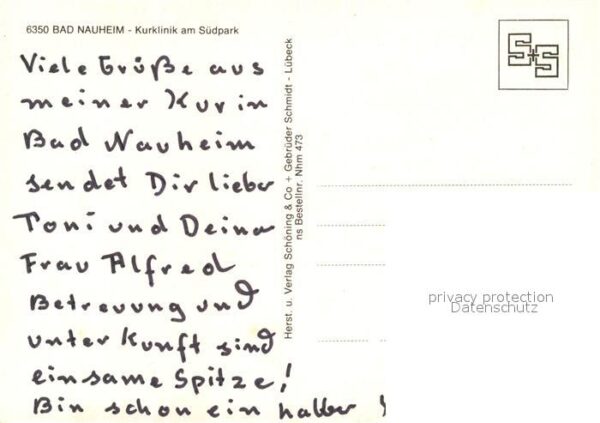 6350 BAD NAUHEIM - Kurklinik am Südpark
Viele Grüße aus
meiner Kur in
Bad Nauheim
sendet Dir lieber
Toni und Deiner
Frau Alfred
Betreuung und
unterkunft sind
einsame Spitze!
Bin schon ein halber
Herst. u. Verlag Schöning & Co + Gebrüder Schmidt - Lübeck
ns Bestellnr. Nhm 473
S+S
privacy protection
Datenschutz